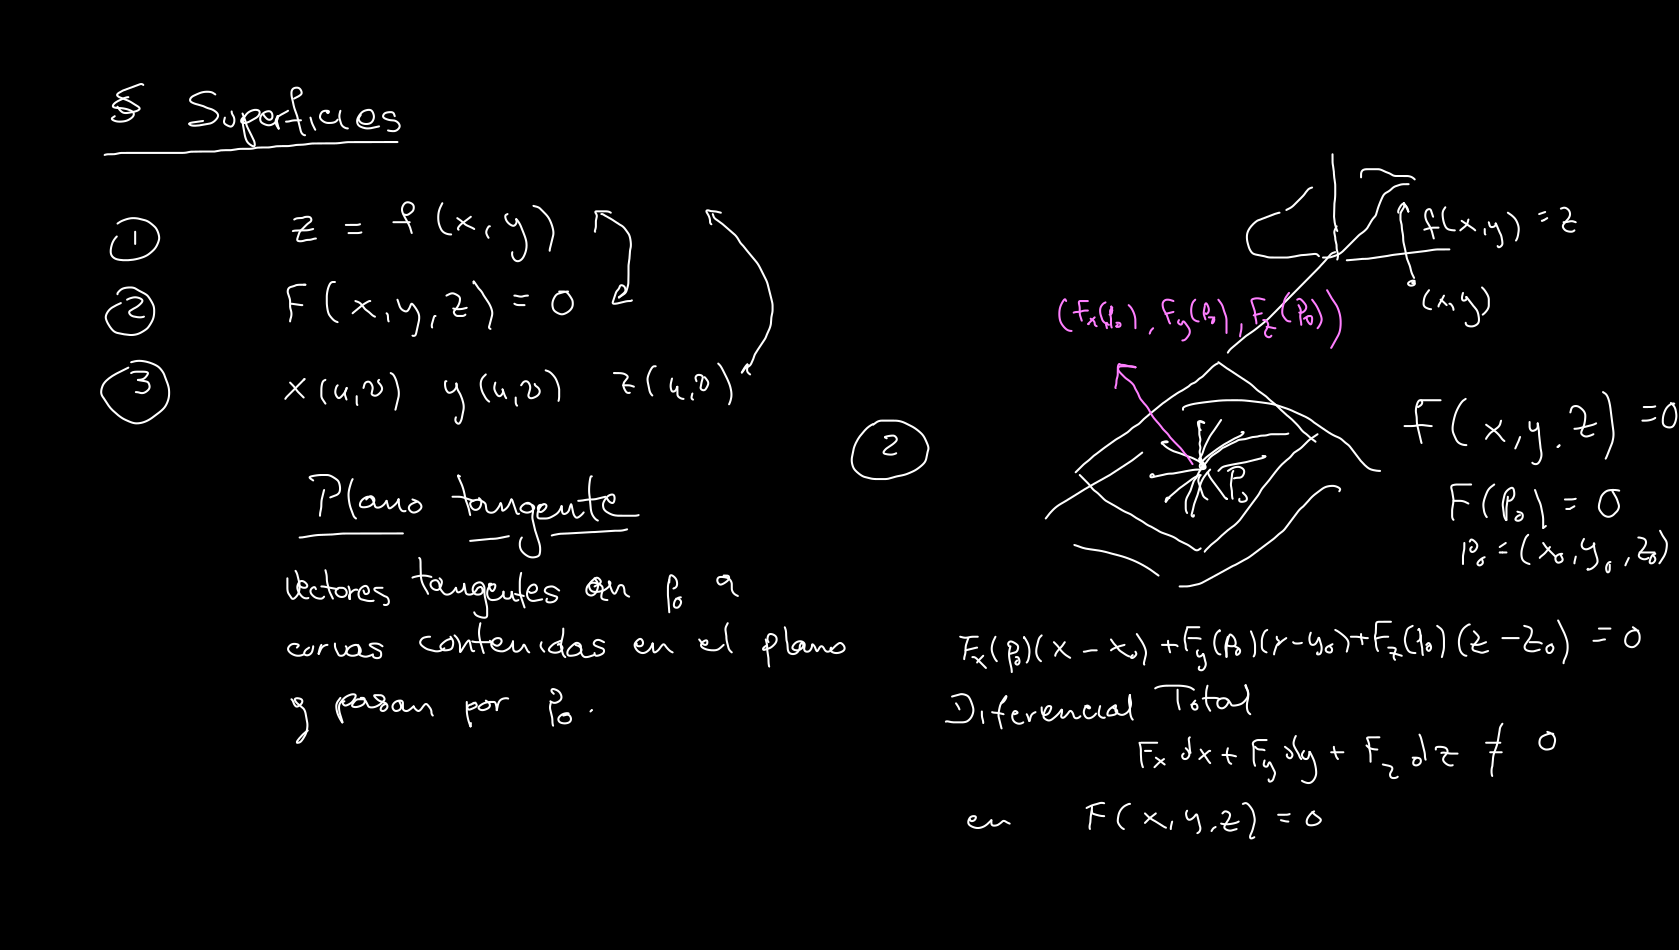 § Superficies
① z = f(x,y)
② F(x,y,z) = 0
③ x(u,v) y(u,v) z(u,v)
Plano tangente
Vectores tangentes en p₀ a
curvas contenidas en el plano
y pasan por p₀.
f(x,y) = z
(x,y)
(Fx(p₀), Fy(p₀), Fz(p₀))
②
P₀
F(x,y,z) = 0
F(p₀) = 0
p₀ = (x₀,y₀,z₀)
Fx(p₀)(x - x₀) + Fy(p₀)(y - y₀) + Fz(p₀)(z - z₀) = 0
Diferencial Total
Fx dx + Fy dy + Fz dz ≠ 0
en F(x,y,z) = 0